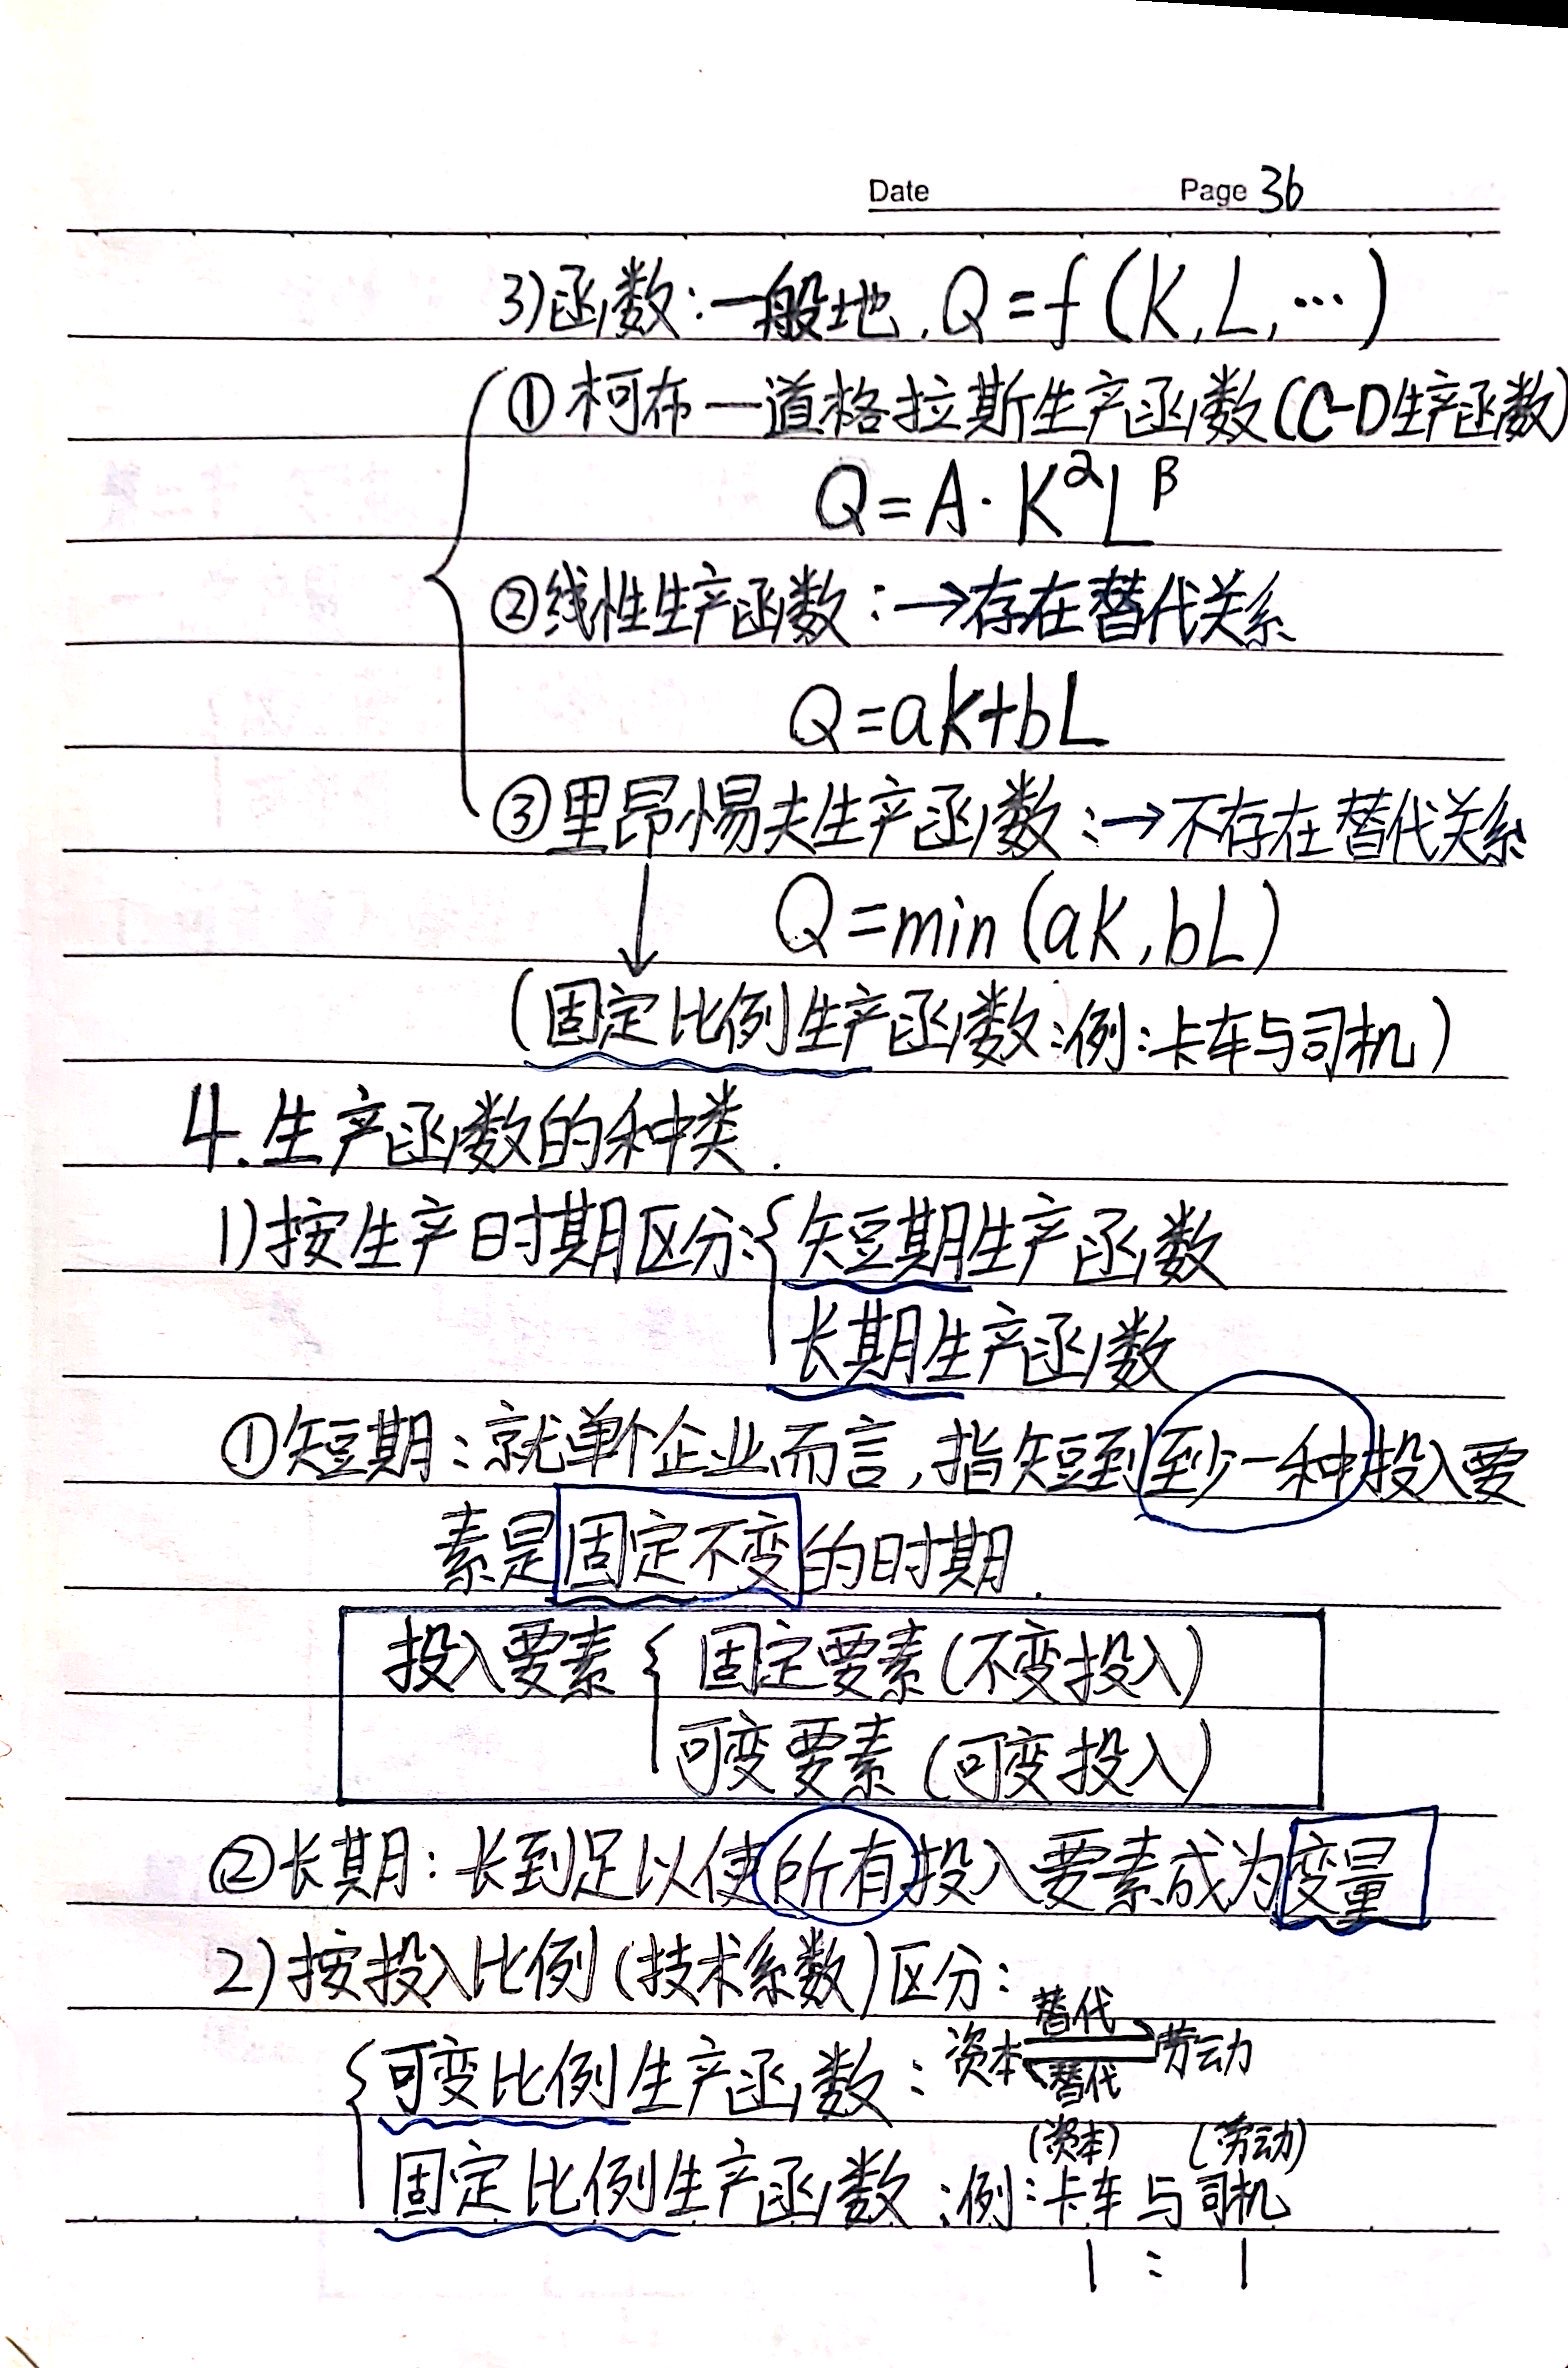 Date Page 36
3)函数:一般地,Q=f(K,L,…)
①柯布—道格拉斯生产函数(C-D生产函数)
Q=A·K^αL^β
②线性生产函数:→存在替代关系
Q=aK+bL
③里昂惕夫生产函数:→不存在替代关系
↓ Q=min(aK,bL)
(固定比例生产函数:例:卡车与司机)
4.生产函数的种类.
1)按生产时期区分:{短期生产函数
长期生产函数
①短期:就单个企业而言,指短到至少一种投入要
素是固定不变的时期.
投入要素{固定要素(不变投入)
可变要素(可变投入)
②长期:长到足以使所有投入要素成为变量
2)按投入比例(技术系数)区分:
替代
{可变比例生产函数:资本⇌劳动
替代
(资本) (劳动)
固定比例生产函数:例:卡车与司机
1 : 1